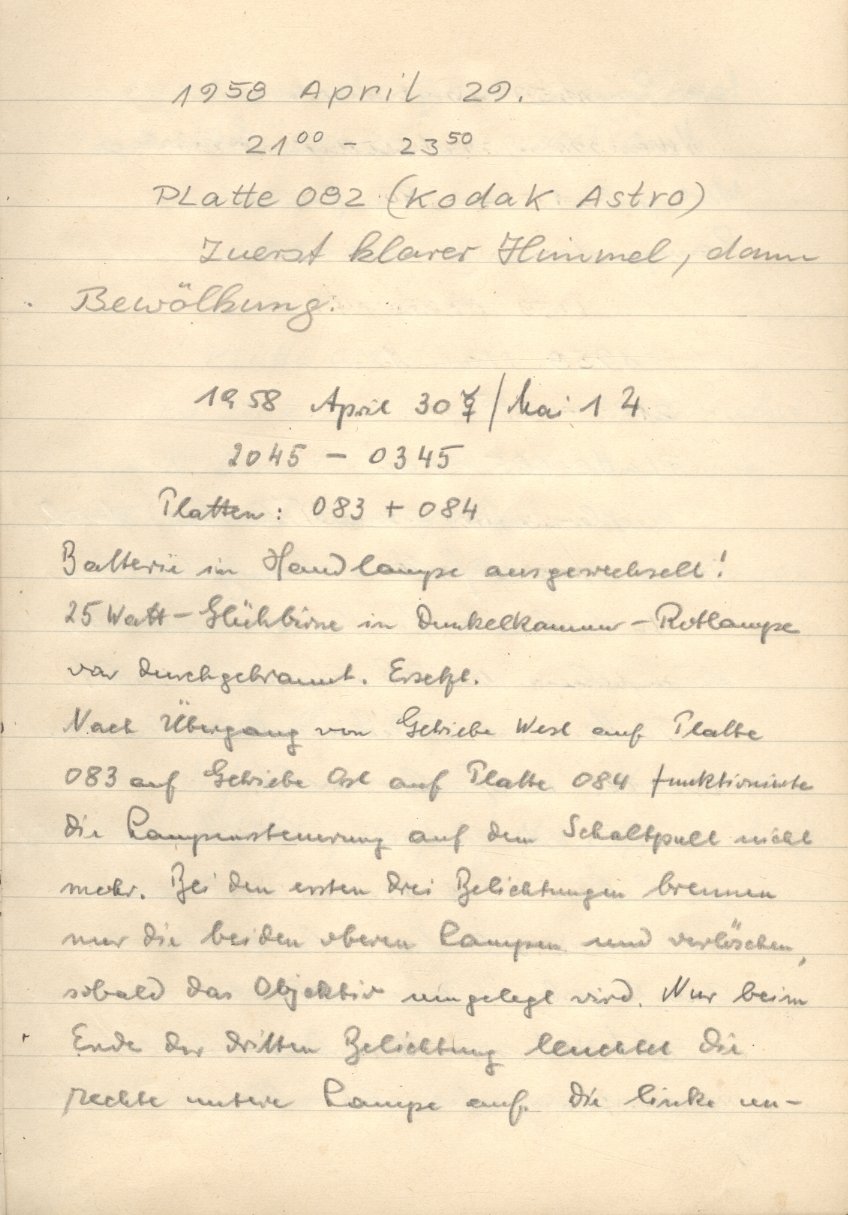 1958 April 29.
21⁰⁰ - 23⁵⁰
Platte 082 (Kodak Astro)
Zuerst klarer Himmel, dann
Bewölkung.
1958 April 30 ☿/Mai 1 ♃
2045 - 0345
Platten: 083 + 084
Batterie in Handlampe ausgewechselt!
25 Watt-Glühbirne in Dunkelkammer-Rotlampe
war durchgebrannt. Ersetzt.
Nach Übergang von Getriebe West auf Platte
083 auf Getriebe Ost auf Platte 084 funktionierte
die Lampensteuerung auf dem Schaltpult nicht
mehr. Bei den ersten drei Belichtungen brennen
nur die beiden oberen Lampen und verlöschen,
sobald das Objektiv umgelegt wird. Nur beim
Ende der dritten Belichtung leuchtet die
rechte untere Lampe auf. Die linke un-